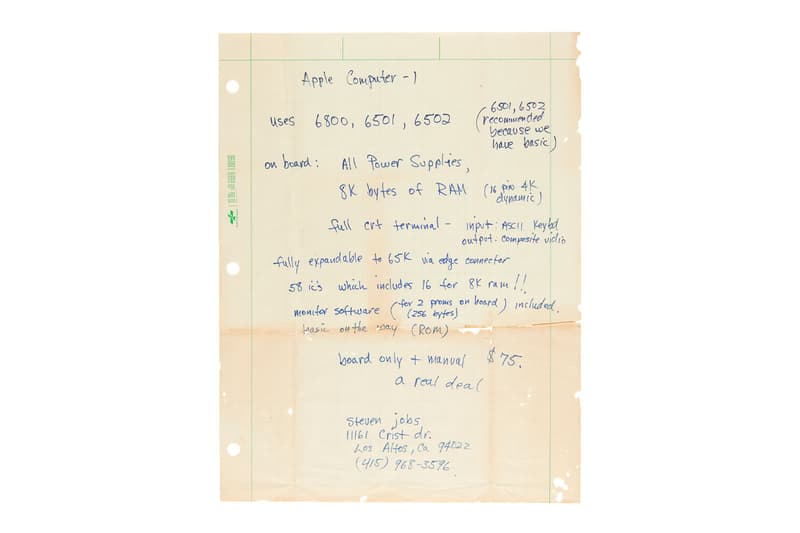 Apple Computer - 1
uses 6800, 6501, 6502
(6501, 6502
recommended
because we
have basic)
on board: All Power Supplies,
8K bytes of RAM (16 pin 4K
dynamic)
full crt terminal - input: ASCII Keybd
output: composite vidio
fully expandable to 65K via edge connector
58 ic's which includes 16 for 8K ram!!
monitor software (for 2 proms on board) included.
(256 bytes)
basic on the way (ROM)
board only + manual $75.
a real deal
Steven jobs
11161 Crist dr.
Los Altos, Ca 94022
(415) 968-3596